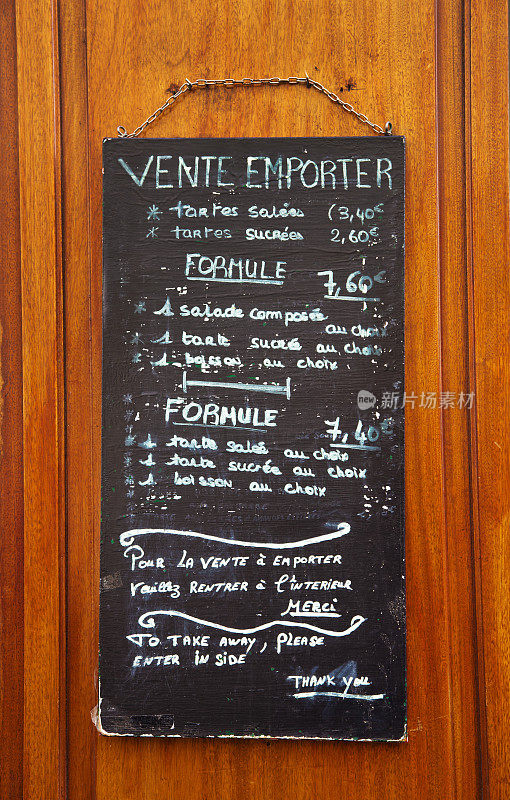 VENTE EMPORTER
* tartes salées (3,40€
* tartes sucrées 2,60€
FORMULE 7,60€
* 1 salade composée au choix
* 1 tarte sucrée au choix
* 1 boisson au choix
FORMULE 7,40€
* 1 tarte salée au choix
* 1 tarte sucrée au choix
* 1 boisson au choix
POUR LA VENTE À EMPORTER
veuillez RENTRER à l'INTERIEUR
MERCI
TO TAKE AWAY, PLEASE
ENTER IN SIDE
THANK YOU
new
视觉中国 iStock